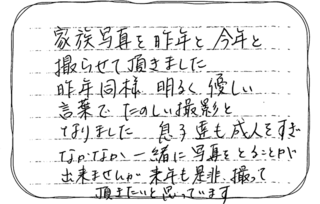 家族写真を昨年と今年と
撮らせて頂きました
昨年同様 明るく優しい
言葉でたのしい撮影と
なりました 息子達も成人をすぎ
なかなか一緒に写真をとることが
出来ませんが来年も是非撮って
頂きたいと思っています